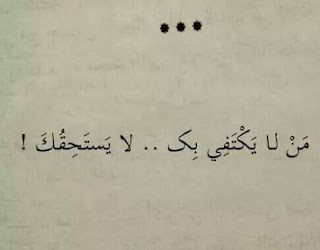 ***
مَنْ لا يَكْتَفِي بِکـ .. لا يَستَحِقُكَ !